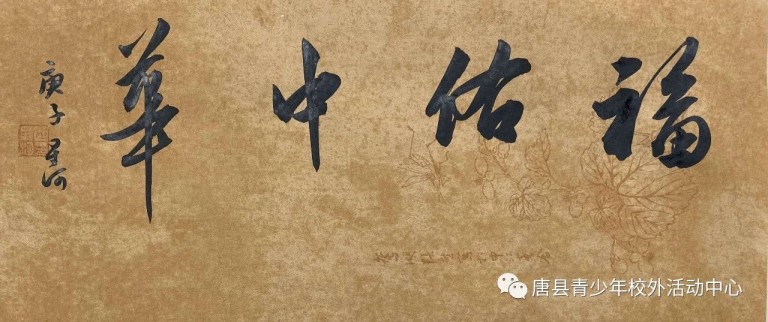 福佑中華
庚子 星河
唐县青少年校外活动中心